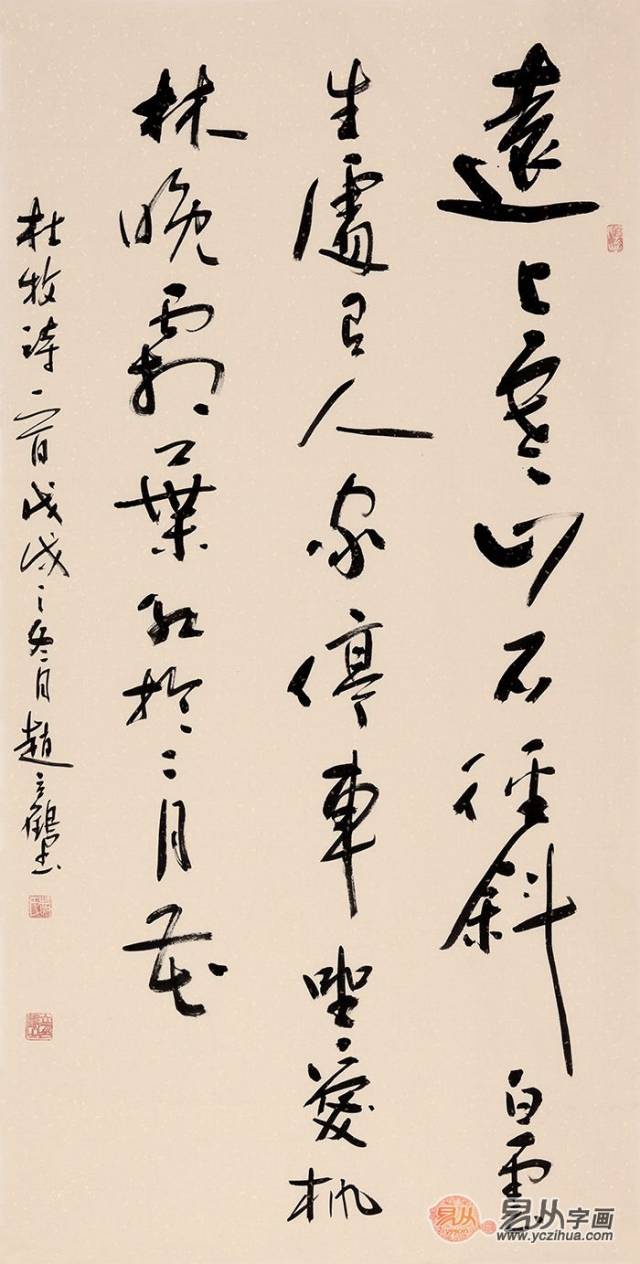 遠上寒山石徑斜白雲
生處有人家停車坐愛楓
林晚霜葉紅於二月花
杜牧詩一首戊戌之冬月趙云鶴書
易从
易从字画
www.yczihua.com